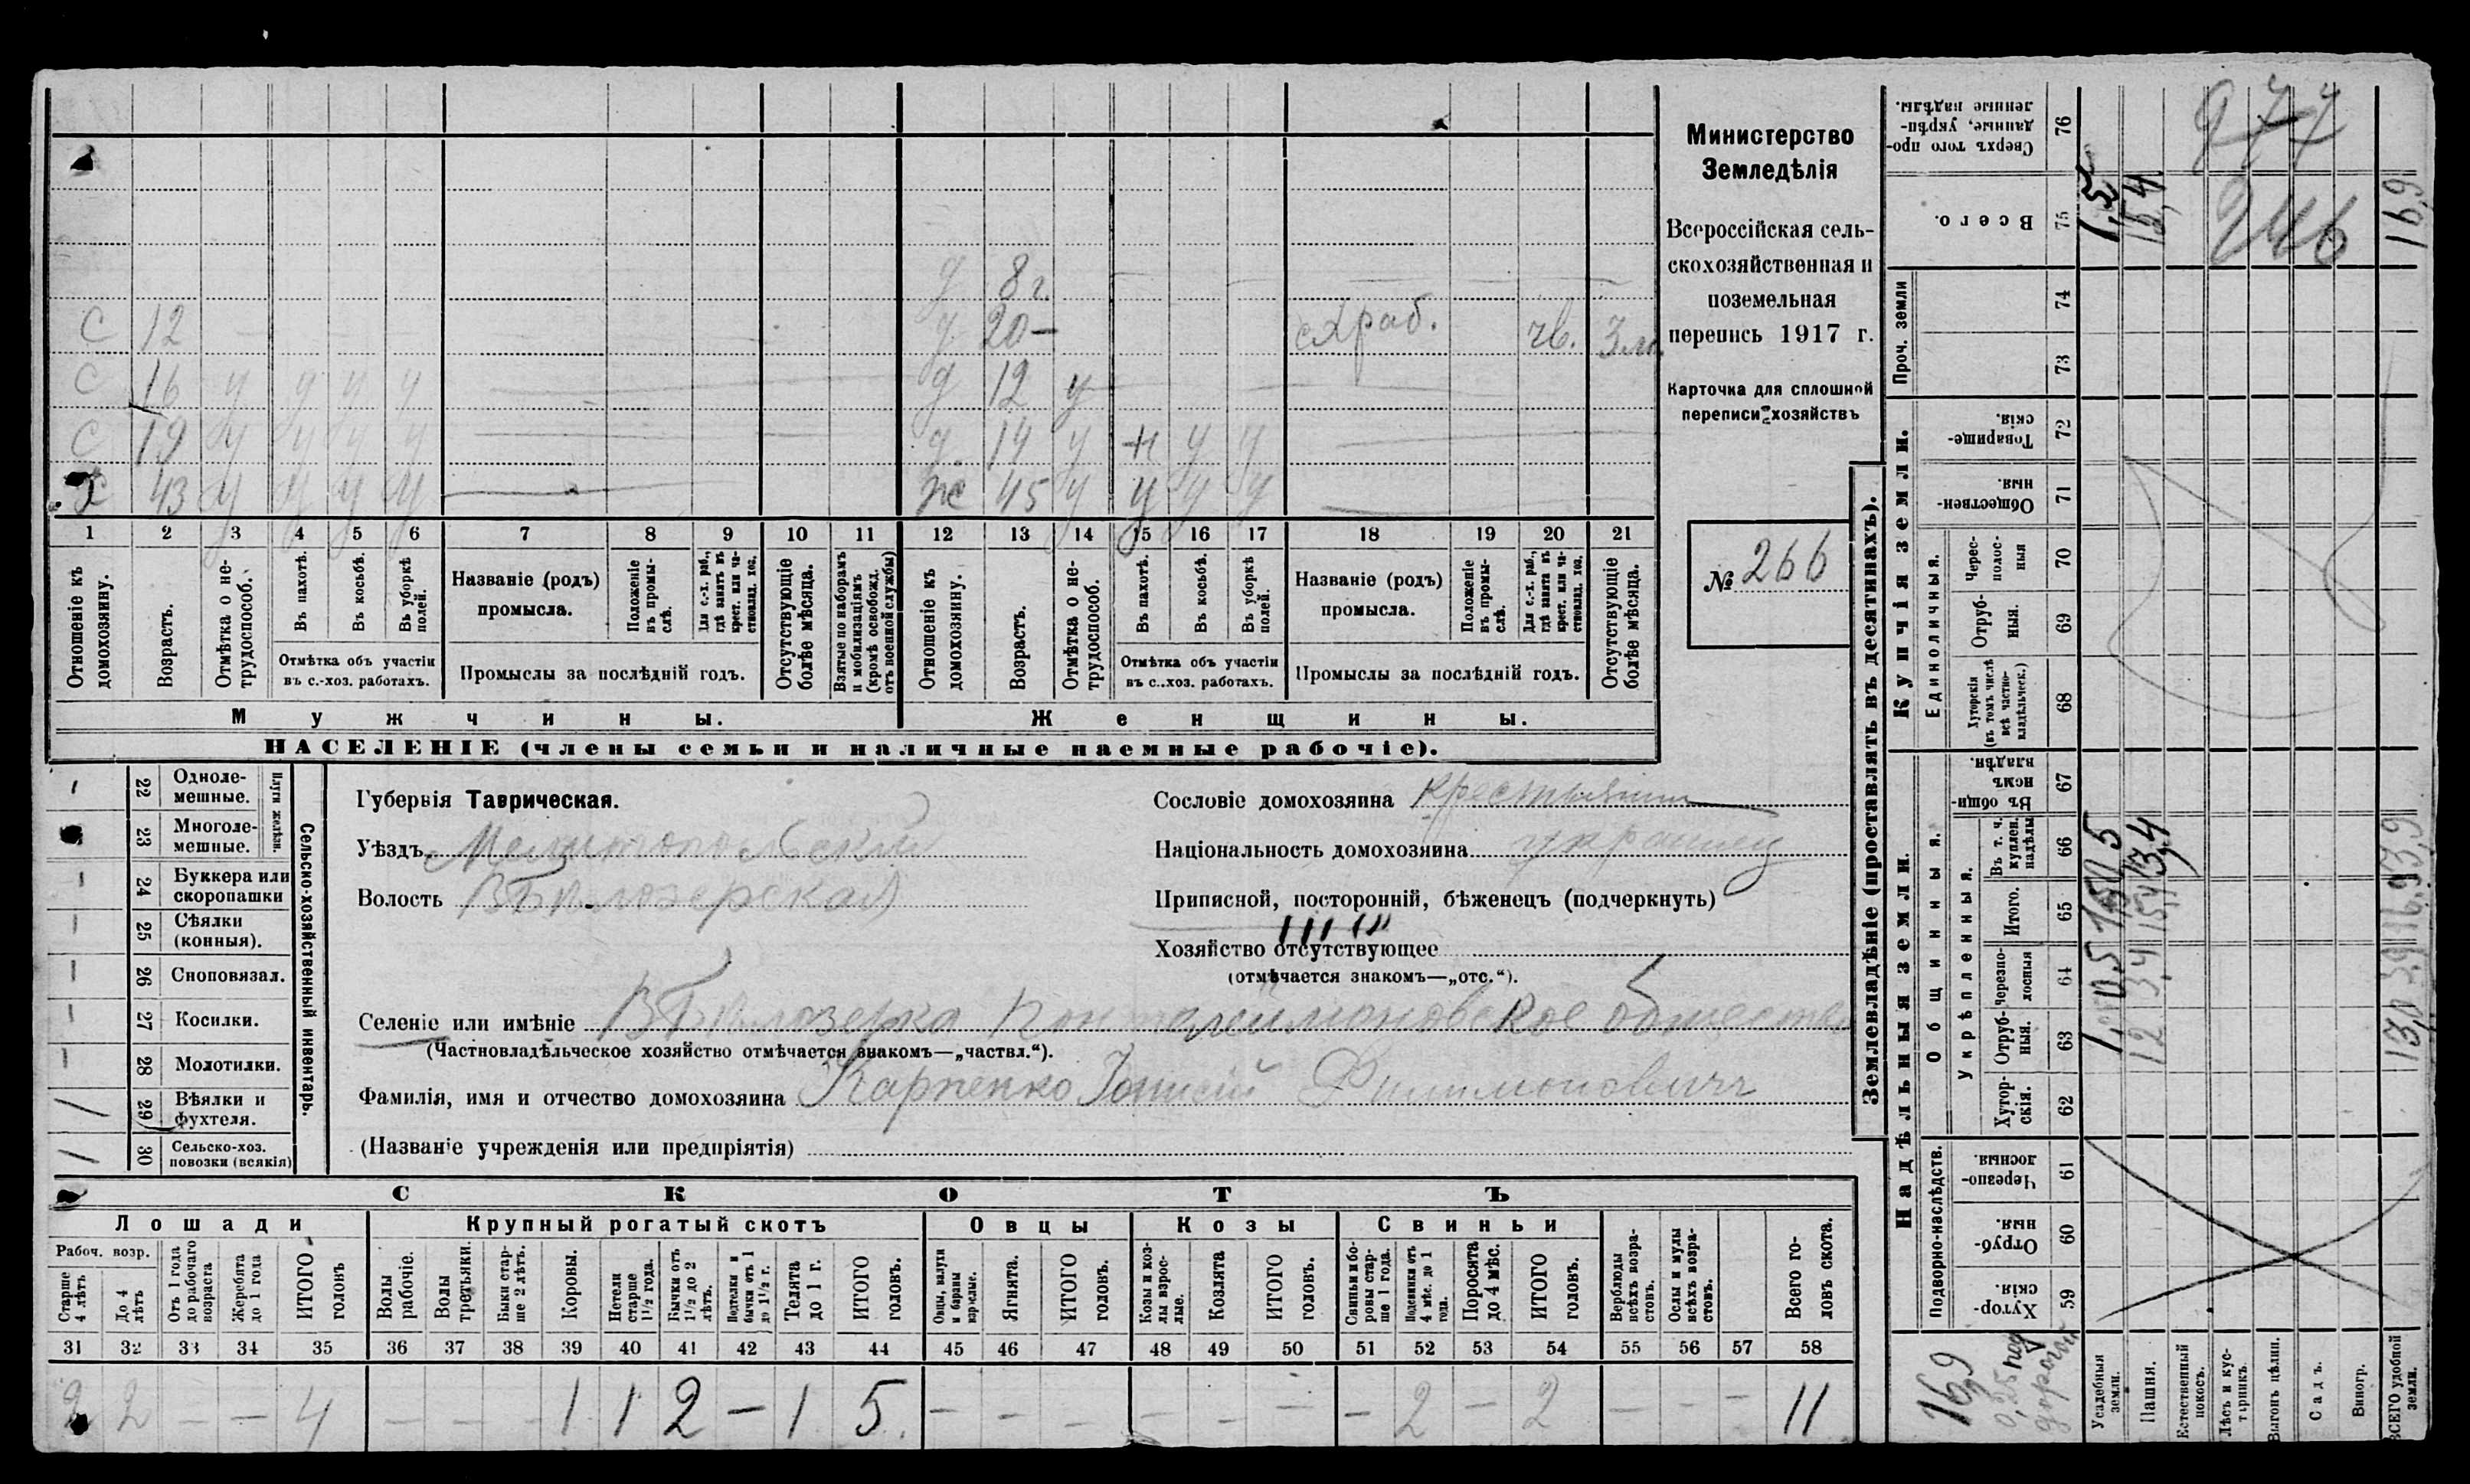 С 12
С 16 у у у у
С 19 у у у у
Х 43 у у у у
д 8 г.
д 20 — схраб. чв. 3 м.
д 12 у
д 14 у н у у
ж 45 у у у у
1 2 3 4 5 6 7 8 9 10 11 12 13 14 15 16 17 18 19 20 21
Отношеніе къ домохозяину.
Возрастъ.
Отмѣтка о не-трудоспособ.
Въ пахотѣ.
Въ косьбѣ.
Въ уборкѣ полей.
Отмѣтка объ участіи
въ с.-хоз. работахъ.
Названіе (родъ)
промысла.
Положеніе въ промы-слѣ.
Для с.-х. раб., гдѣ занятъ въ крест. или ча-стновлад. хоз.
Промыслы за послѣдній годъ.
Отсутствующіе болѣе мѣсяца.
Взятые по наборамъ и мобилизаціямъ (кромѣ освобожд. отъ военной службы)
Отношеніе къ домохозяину.
Возрастъ.
Отмѣтка о не-трудоспособ.
Въ пахотѣ.
Въ косьбѣ.
Въ уборкѣ полей.
Отмѣтка объ участіи
въ с..хоз. работахъ.
Названіе (родъ)
промысла.
Положеніе въ промы-слѣ.
Для с.-х. раб., гдѣ занята въ крест. или ча-стновлад. хоз.
Промыслы за послѣдній годъ.
Отсутствующіе болѣе мѣсяца.
Мужчины.
Женщины.
НАСЕЛЕНІЕ (члены семьи и наличные наемные рабочіе).
Министерство
Земледѣлія
Всероссійская сель-
скохозяйственная и
поземельная
перепись 1917 г.
Карточка для сплошной
переписи хозяйствъ
№ 266
22 Одноле-мешные.
23 Многоле-мешные.
Плуги желѣзн.
24 Буккера или скоропашки
25 Сѣялки (конныя).
26 Сноповязал.
27 Косилки.
28 Молотилки.
29 Вѣялки и фухтеля. /
30 Сельско-хоз. повозки (всякія) /
Сельско-хозяйственный инвентарь.
Губернія Таврическая.
Уѣздъ Мелитопольский
Волость В Бѣлозерская
Селеніе или имѣніе В Бѣлозерка Пантелеймоновское общество
(Частновладѣльческое хозяйство отмѣчается знакомъ—„частвл.“).
Фамилія, имя и отчество домохозяина Карпенко Филимоновичъ
(Названіе учрежденія или предпріятія)
Сословіе домохозяина крестьянин
Національность домохозяина украинец
Приписной, посторонній, бѣженецъ (подчеркнуть)
Хозяйство отсутствующее
(отмѣчается знакомъ—„отс.“).
СКОТЪ
Лошади
Крупный рогатый скотъ
Овцы
Козы
Свиньи
Рабоч. возр.
Старше 4 лѣтъ
До 4 лѣтъ
Отъ 1 года до рабочаго возраста
Жеребята до 1 года
ИТОГО головъ
Волы рабочіе.
Волы третьяки.
Быки стар-ше 2 лѣтъ.
Коровы.
Нетели старше 1½ года.
Бычки отъ 1½ до 2 лѣтъ.
Подтелки и бычки отъ 1 до 1½ г.
Телята до 1 г.
ИТОГО головъ.
Овцы, валухи и бараны взрослые.
Ягнята.
ИТОГО головъ.
Козы и коз-лы взрос-лые.
Козлята
ИТОГО головъ.
Свиньи и бо-ровы стар-ше 1 года.
Подсвинки отъ 4 мѣс. до 1 года.
Поросята до 4 мѣс.
ИТОГО головъ.
Верблюды всѣхъ возра-стовъ.
Ослы и мулы всѣхъ возра-стовъ.
Всего го-ловъ скота.
31 32 33 34 35 36 37 38 39 40 41 42 43 44 45 46 47 48 49 50 51 52 53 54 55 56 57 58
2 2 — — 4 — — — 1 1 2 — 1 5. — — — — — — — 2 — 2 — — — 11
Землевладѣніе (проставлять въ десятинахъ).
Надѣльныя земли.
Купчія земли.
Проч. земли
Подворно-наслѣдств.
Общинныя.
Укрѣпленныя.
Единоличныя.
Хутор-скія. 59
Отруб-ныя. 60
Черезпо-лосныя. 61
Хутор-скія. 62
Отруб-ныя. 63
Черезпо-лосныя 64
Итого. 65
Въ т. ч. куплен. надѣлы 66
Въ общин-номъ владѣн. 67
Хуторскія (въ томъ числѣ всѣ частно-владѣльческ.) 68
Отруб-ныя. 69
Черес-полос-ныя 70
Обществен-ныя. 71
Товарище-скія. 72
73
74
Всего. 75
Сверхъ того про-данные, укрѣп-ленные надѣлы. 76
Усадебныя земли.
Пашня. 12 3,4 15,4 13,4 15,4
Естественный покосъ.
Лѣсъ и кус-тарникъ.
Выгонъ цѣлин.
Садъ.
Виногр.
ВСЕГО удобной земли. 16,9
1,5
977
246
16,9
0,25 под дорогой